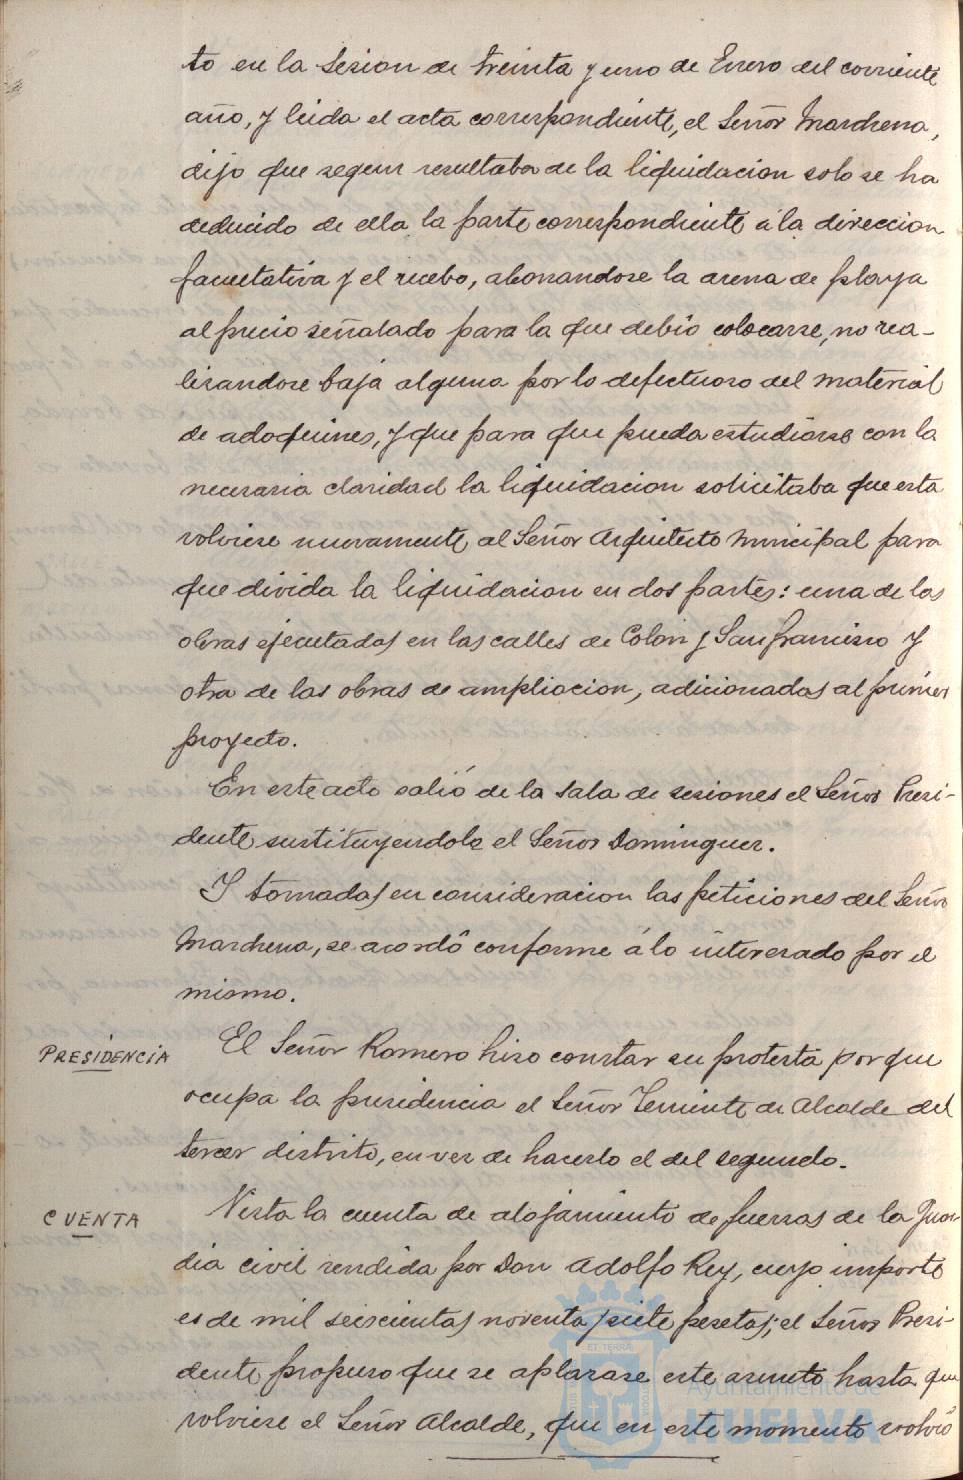 to en la Sesion de treinta y uno de Enero del corriente
año, y leida el acta correspondiente, el Señor Marchena,
dijo que segun resultaba de la liquidacion solo se ha
deducido de ella la parte correspondiente á la direccion
facultativa y el recebo, abonandose la arena de playa
al precio señalado para la que debió colocarse, no rea-
lisandose baja alguna por lo defectuoso del material
de adoquines, y que para que pueda estudiarse con la
necesaria claridad la liquidacion solicitaba que esta
volviese nuevamente al Señor Arquitecto Municipal para
que divida la liquidacion en dos partes: una de las
obras ejecutadas en las calles de Colon y San Francisco y
otra de las obras de ampliacion, adicionadas al primer
proyecto.
En este acto salió de la Sala de sesiones el Señor Presi-
dente sustituyendole el Señor Dominguez.
Y tomadas en consideracion las peticiones del Señor
Marchena, se acordó conforme á lo interesado por el
mismo.
PRESIDENCIA
El Señor Romero hizo constar su protesta por que
ocupa la presidencia el Señor Teniente de Alcalde del
tercer distrito, en vez de hacerlo el del segundo.
CUENTA
Vista la cuenta de alojamiento de fuerzas de la Guar-
dia civil rendida por Don Adolfo Rey, cuyo importe
es de mil seiscientas noventa y siete pesetas; el Señor Presi-
dente propuso que se aplazase este asunto hasta que
volviese el Señor Alcalde, que en este momento volvió
ET TERRA
Ayuntamiento de
HUELVA